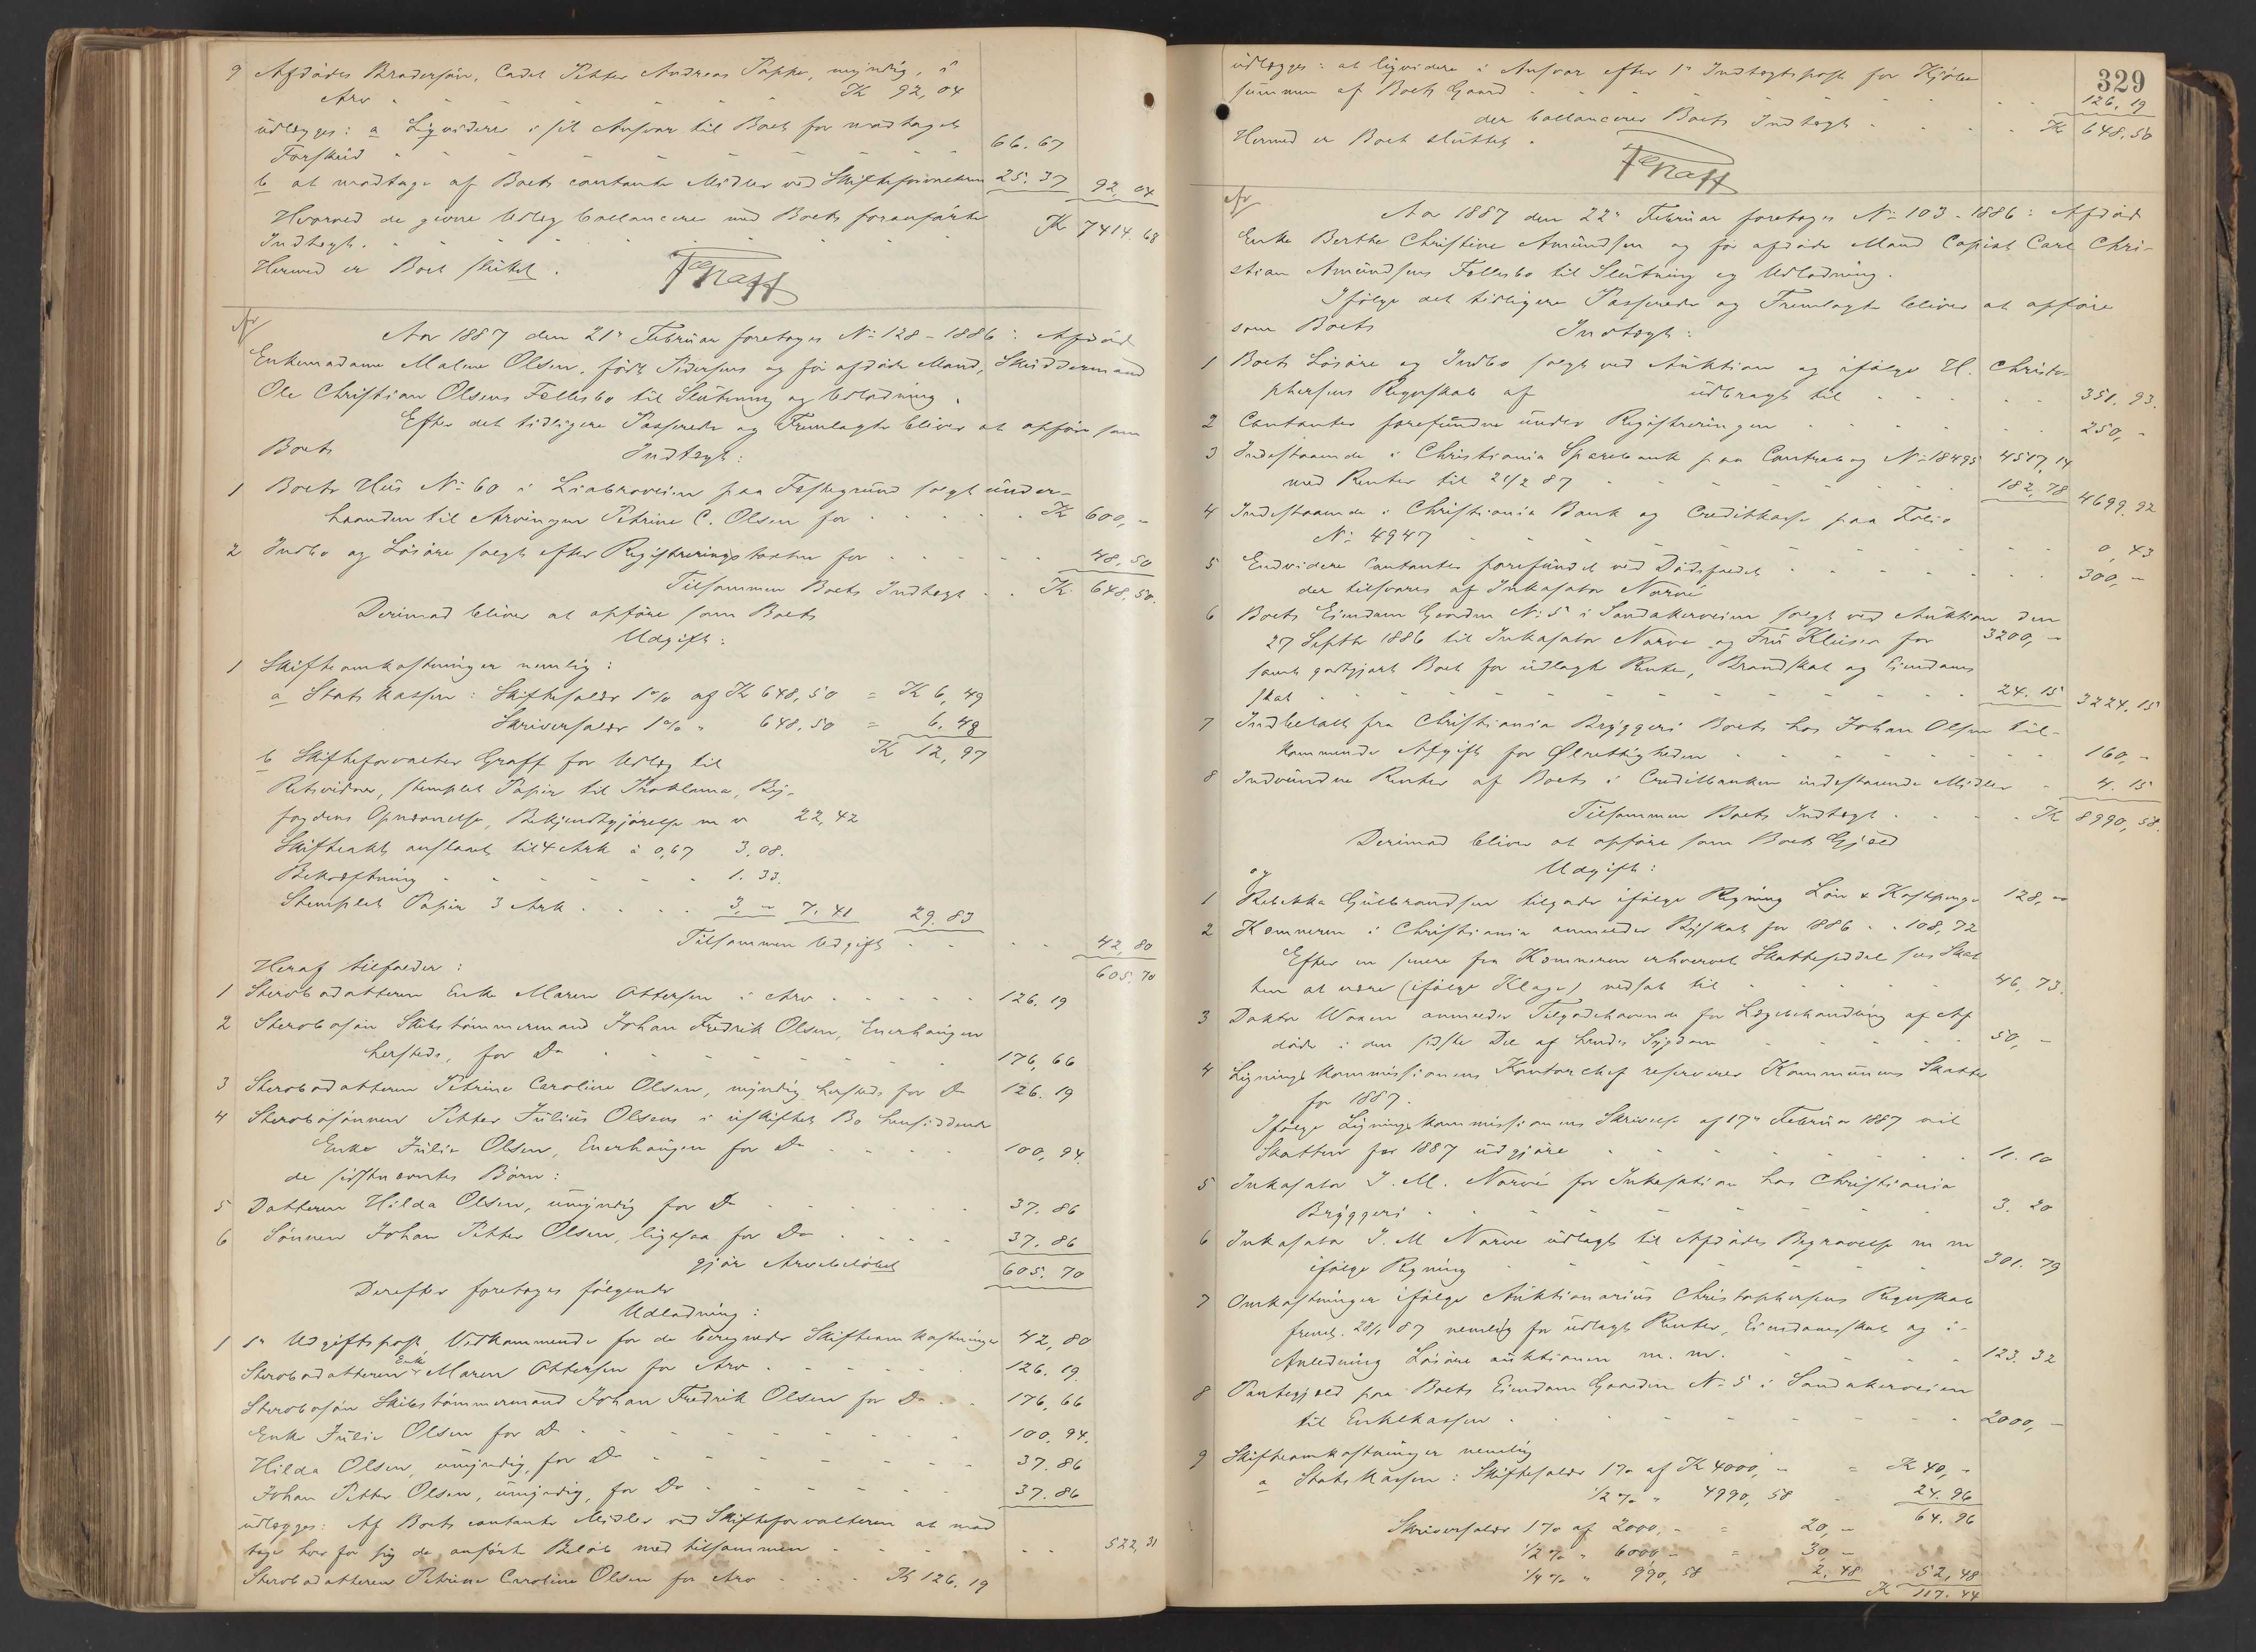 9 Afdødes Brodersøn, Cadet Petter Andreas Poppe, myndig, i
Arv - - - - - - - K 92,04
udlægges: a Liqvidere i sit Ansvar til Boet for modtaget
Forskud - - - - - - - 66.67
b at modtage af Boets contante Midler ved Skifteforvalteren 25.37 92,04
Hvorved de givne Udlæg ballancerer med Boets foranførte K 7414.68
Indtægt. - - - - - -
Hermed er Boet sluttet.
Graff
Aar 1887 den 21de Februar foretoges No 128 - 1886: Afdød
Enkemadame Malene Olsen, født Pedersens og før afdøde Mand, Skuddermand
Ole Christian Olsens Fellesbo til Slutning og Udlodning.
Efter det tidligere Passerede og Fremlagte bliver at opføre som
Boets Indtægt:
1 Boets Hus No 60 i Liabroveien paa Festegrund solgt under-
haanden til Arvingen Petrine C. Olsen for - - - K 600,-
2 Indbo og Løsøre solgt efter Registreringstaxten for - - - 48,50
Tilsammen Boets Indtægt - - K. 648,50.
Derimod bliver at opføre som Boets
Udgift:
1 Skifteomkostninger nemlig:
a Statskassen: Skiftesalær 1% af K 648,50 = K 6,49
Skriversalær 1% " 648,50 = 6.48
K 12,97
b Skifteforvalter Graff for Udlæg til
Retsvidner, stemplet Papir til Proklama, By-
fogdens Opnævnelse, Bekjendtgjørelse m v 22,42
Skifteakt anslaaet til 4 Ark à 0,67 3,08.
Bekræftning - - - - - - 1.33.
Stemplet Papir 3 Ark - - - - 3,- 7.41 29.83
Tilsammen Udgift - - - 42,80
Heraf tilfalder: 605.70
1 Stervbodatteren Enke Maren Ottersen i Arv - - - - 126,19
2 Stervbosøn Skibstømmermand Johan Fredrik Olsen, Enerhaugen
hersteds, for Do - - - - - - 176,66
3 Stervbodatteren Petrine Caroline Olsen, myndig hersteds for Do 126.19
4 Stervbosønnen Petter Julius Olsens i uskiftet Bo hensiddende
Enke Julie Olsen, Enerhaugen for Do - - - - 100,94.
de sidstnævntes Børn:
5 Datteren Hilda Olsen, umyndig for Do - - - - 37.86
6 Sønnen Johan Petter Olsen, ligesaa for Do - - - 37.86
gjør Arvebeløbet 605.70
Derefter foretoges følgende
Udlodning:
1 1ste Udgiftspost, Vedkommende for de beregnede Skifteomkostninger 42,80
Stervbodatteren Enke Maren Ottersen for Arv - - - - 126.19.
Stervbosøn Skibstømmermand Johan Fredrik Olsen for Do - - 176,66
Enke Julie Olsen for Do - - - - - - 100.94.
Hilda Olsen, umyndig, for Do - - - - - 37.86
Johan Petter Olsen, umyndig, for Do - - - - - 37.86
udlægges: Af Boets contante Midler ved Skifteforvalteren at mod
tage hver for sig de anførte Beløb med tilsammen - - - - - 522,31
Stervbodatteren Petrine Caroline Olsen for Arv - - - K 126,19
329
udlægges: at liqvidere i Ansvar efter 1ste Indtægtspost for Kjøbe
summen af Boets Gaard - - - - - - 126,19
der ballancerer Boets Indtægt - - - - K 648.50
Hermed er Boet sluttet.
Graff
Aar 1887 den 22de Februar foretoges No 103 - 1886: Afdød
Enke Berthe Christine Amundsen og før afdøde Mand Copist Carl Chri-
stian Amundsens Fellesbo til Slutning og Udlodning.
Ifølge det tidligere Passerede og Fremlagte bliver at opføre
som Boets Indtægt:
1 Boets Løsøre og Indbo solgt ved Auktion og ifølge H. Christo-
phersens Regnskab af udbragt til - - - - 351.93.
2 Contanter forefundne under Registreringen - - - - - 250,-
3 Indestaaende i Christiania Sparebank paa Contrabog No 18495 4517,14
med Renter til 21/2 87 - - - - - 182,78 4699.92
4 Indestaaende i Christiania Bank og Creditkasse paa Folio
No 4947 - - - - - - - - 0,43
5 Endvidere Contanter forefundet ved Dødsfaldet - - - - - 300,-
der tilsvares af Inkasator Narvè
6 Boets Eiendom Gaarden No 5 i Sandakerveien solgt ved Auktion den
27 Septbr 1886 til Inkasator Narve og Fru Kluser for 3200,-
samt godtgjort Boet for udlagte Renter, Brandskat og Eiendoms
skat - - - - - - - - - 24.15 3224.15
7 Indbetalt fra Christiania Bryggeri Boets hos Johan Olsen til-
kommende Afgift for Ølrettigheden - - - - - 160,-
8 Indvundne Renter af Boets i Creditbanken indestaaende Midler - 4.15
Tilsammen Boets Indtægt - - - - K 8990,58.
Derimod bliver at opføre som Boets Gjæld
og Udgift:
1 Rebekka Gulbrandsen tilgode ifølge Regning Løn & Kostpenge 128,-
2 Kæmneren i Christiania anmelder Byskat for 1886 - - 108,72
Efter en senere fra Kæmneren erhvervet Skatteseddel sees Skat
ten at være (ifølge Klage) nedsat til - - - - - 46,73.
3 Doktor Waxen anmelder Tilgodehavende for Lægebehandling af Af
døde i den sidste Del af hendes Sygdom - - - - 50,-
4 Ligningskommissionens Kontorchef reserverer Kommunens Skatter
for 1887.
Ifølge Ligningskommissionens Skrivelse af 17de Februar 1887 vil
Skatten for 1887 udgjøre - - - - - - 11.10
5 Inkasator I. M. Narvé for Inkasation hos Christiania
Bryggeri - - - - - - - 3.20
6 Inkasator I. M Narve udlagt til Afdødes Begravelse m m
ifølge Regning - - - - - - - 301.79
7 Omkostninger ifølge Auktionarius Christophersens Regnskab
freml. 20/1 87 nemlig for udlagte Renter, Eiendomsskat og i-
Anledning Løsøreauktionen m. m. - - - - - 123.32
8 Pantegjæld paa Boets Eiendom Gaarden No 5 i Sandakerveien
til Enkekassen - - - - - - - 2000,-
9 Skifteomkostninger nemlig
a Statskassen: Skiftesalær 1% af K 4000,- = K 40,-
1/2 % " 4990,58 - 24.96
64.96
Skriversalær 1% af 2000,- = 20,-
1/2 % " 6000 - = 30,-
1/4 % " 990,58 2.48 52,48
K 117.44